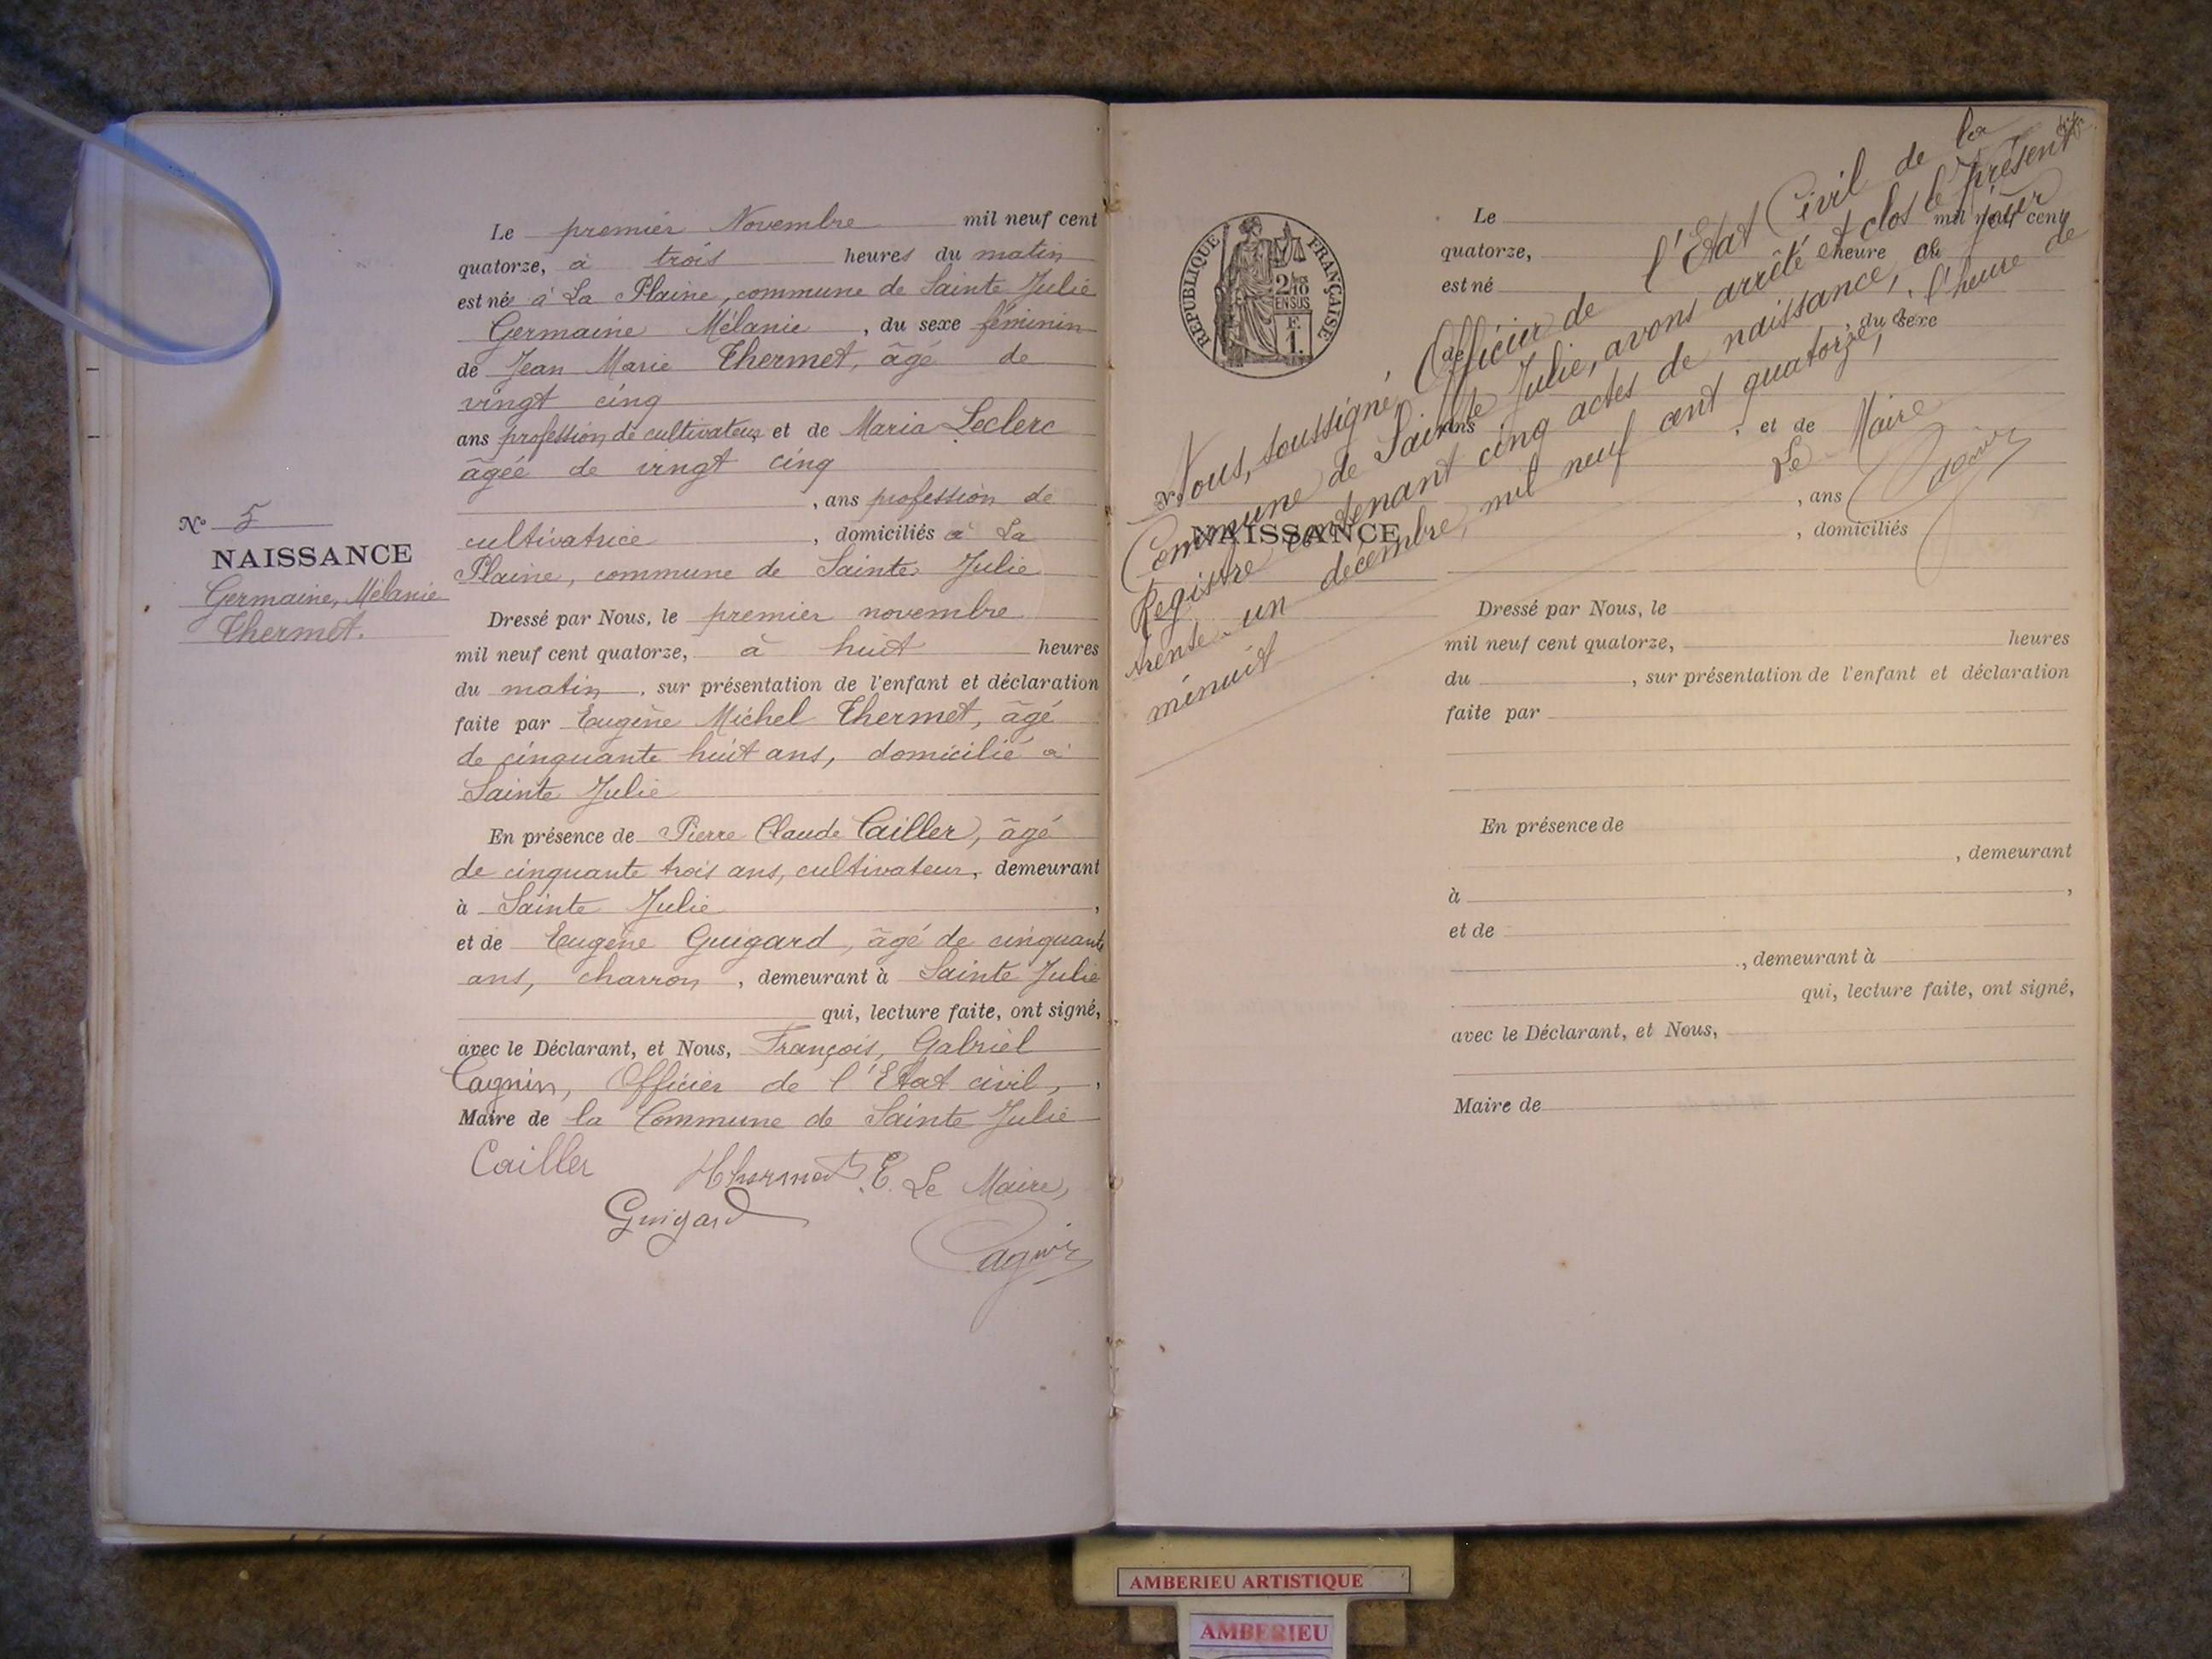 N° 5
NAISSANCE
Germaine, Mélanie
Thermet.
Le premier Novembre mil neuf cent
quatorze, à trois heures du matin
est née à La Plaine, commune de Sainte Julie
Germaine Mélanie, du sexe féminin
de Jean Marie Thermet, âgé de
vingt cinq
ans profession de cultivateur et de Maria Leclerc
âgée de vingt cinq
, ans profession de
cultivatrice, domiciliés à La
Plaine, commune de Sainte Julie
Dressé par Nous, le premier novembre
mil neuf cent quatorze, à huit heures
du matin, sur présentation de l'enfant et déclaration
faite par Eugène Michel Thermet, âgé
de cinquante huit ans, domicilié à
Sainte Julie
En présence de Pierre Claude Cailler, âgé
de cinquante trois ans, cultivateur, demeurant
à Sainte Julie,
et de Eugène Guigard, âgé de cinquante
ans, charron, demeurant à Sainte Julie
qui, lecture faite, ont signé,
avec le Déclarant, et Nous, François, Gabriel
Cagnin, Officier de l'Etat civil,
Maire de la Commune de Sainte Julie
Cailler Thermet E. Le Maire,
Guigard
Cagnin
RÉPUBLIQUE FRANÇAISE
2/10
EN SUS
F.
1.
Nous, soussigné, Officier de l'Etat Civil de la
Commune de Sainte Julie, avons arrêté et clos le présent
Registre contenant cinq actes de naissance, ce jour
trente-un décembre, mil neuf cent quatorze, à l'heure de
minuit
Le Maire
Cagnin
N°
NAISSANCE
Le mil neuf cent
quatorze, heure du
est né
, du sexe
de
ans , et de
, ans
, domiciliés
Dressé par Nous, le
mil neuf cent quatorze, heures
du , sur présentation de l'enfant et déclaration
faite par
En présence de
, demeurant
à ,
et de
, demeurant à
qui, lecture faite, ont signé,
avec le Déclarant, et Nous,
Maire de
AMBERIEU ARTISTIQUE
AMBERIEU